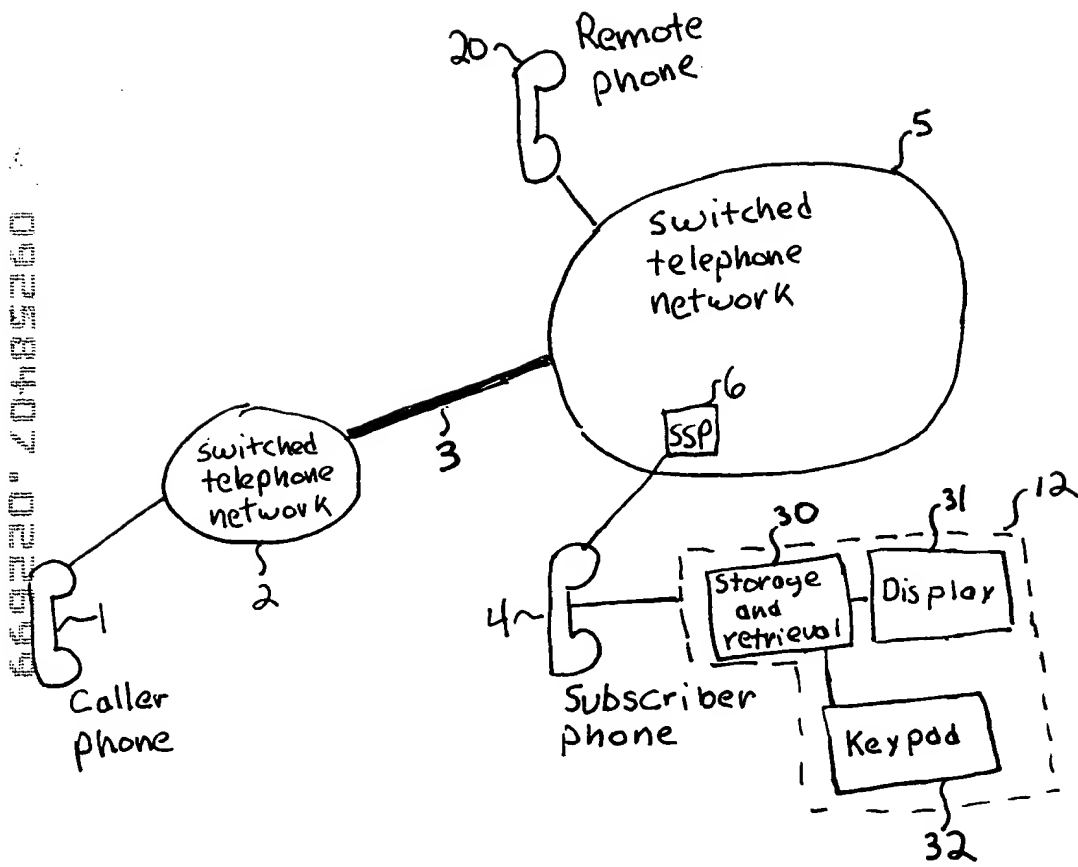 20
Remote
phone
5
switched
telephone
network
6
SSP
3
switched
telephone
network
2
1
Caller
phone
4
Subscriber
phone
30
31
12
Storage
and
retrieval
Display
Keypad
32
09258407.022699